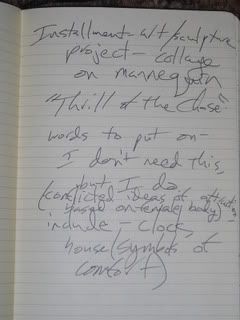 Installment- art/sculpture
project- collage
on mannequin
"Thrill of the Chase"
words to put on-
I don't need this,
but I do
(conflicted ideas of attraction
based on female body)
include - clock,
house (symbols of
comfort)